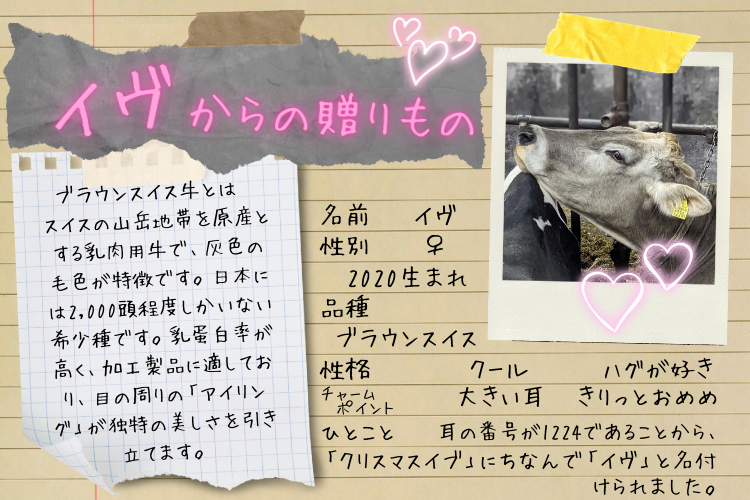 イヴからの贈りもの
ブラウンスイス牛とは
スイスの山岳地帯を原産と
する乳肉用牛で、灰色の
毛色が特徴です。日本に
は2,000頭程度しかいない
希少種です。乳蛋白率が
高く、加工製品に適してお
り、目の周りの「アイリン
グ」が独特の美しさを引き
立てます。
名前 イヴ
性別 ♀
2020生まれ
品種
ブラウンスイス
性格 クール ハグが好き
チャーム
ポイント 大きい耳 きりっとおめめ
ひとこと 耳の番号が1224であることから、
「クリスマスイブ」にちなんで「イヴ」と名付
けられました。